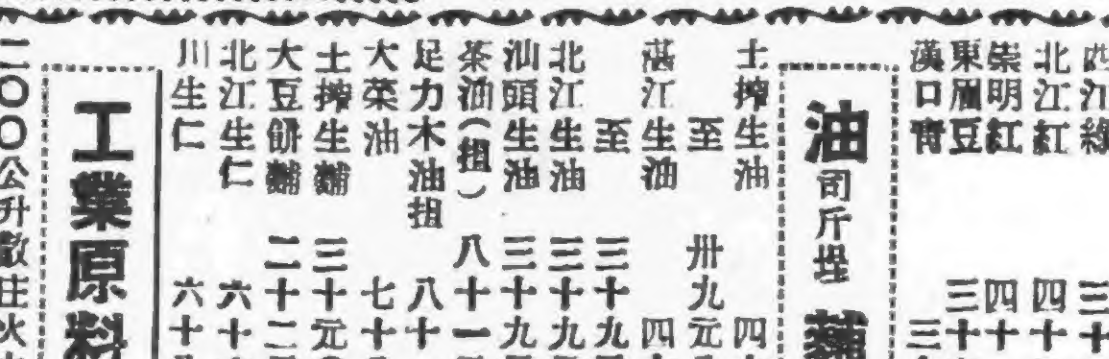 西江綠 三十
北江紅 四十
崇明紅 四十
東眉豆 三十
漢口青 三
油 司斤埕 麸
土搾生油 四
至 卅九元
湛江生油 四
至 三十九
北江生油 三十九
汕頭生油 三十九
茶油(担) 八十一
足力木油担 八十
大菜油 七十
土搾生麸 三十元
大豆餅麸 二十二
北江生仁 六十
川生仁 六十
工業原料
二〇〇公升散庄火